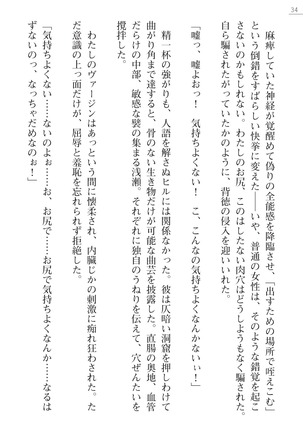 34
麻痺していた神経が覚醒めて偽りの全能感を降臨させ、「出すための場所で咥えこむ」
という倒錯をすばらしい快挙に変えた――いや、普通の女性は、そのような錯覚を起こ
さないのかもしれない。わたしのお尻、このはしたない肉穴はどうしようもなく騙された。
自ら騙されたがっていたかのように、背徳の侵入を迎えいれた。
「嘘っ、嘘よおっ！　気持ちよくない！　こ、こんなの気持ちよくないぃ！」
精一杯の強がりも、人語を解さぬヒルには関係なかった。彼は仄暗い洞窟を押しわけて
曲がり角まで達すると、骨のない生き物だけが可能な曲芸を披露した。直腸の奥地、血管
だらけの中部、敏感な襞の集まる浅瀬。それぞれに独自のうねりを伝えて、穴ぜんたいを
攪拌した。
わたしのヴァージンはあっという間に懐柔され、内臓じかの刺激に痴れ狂わされた。た
だ意識の上っ面だけが、屈辱と羞恥を忘れられず拒絶した。
「気持ちよくない……ないのぉ……お、お尻で……お尻で気持ちよくなんか……なるは
ずないのっ、なっちゃだめなのぉ！」